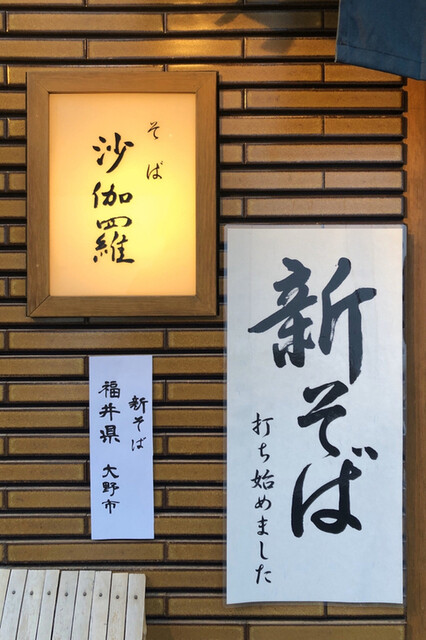 そば
沙伽羅
新そば
打ち始めました
新そば
福井県 大野市